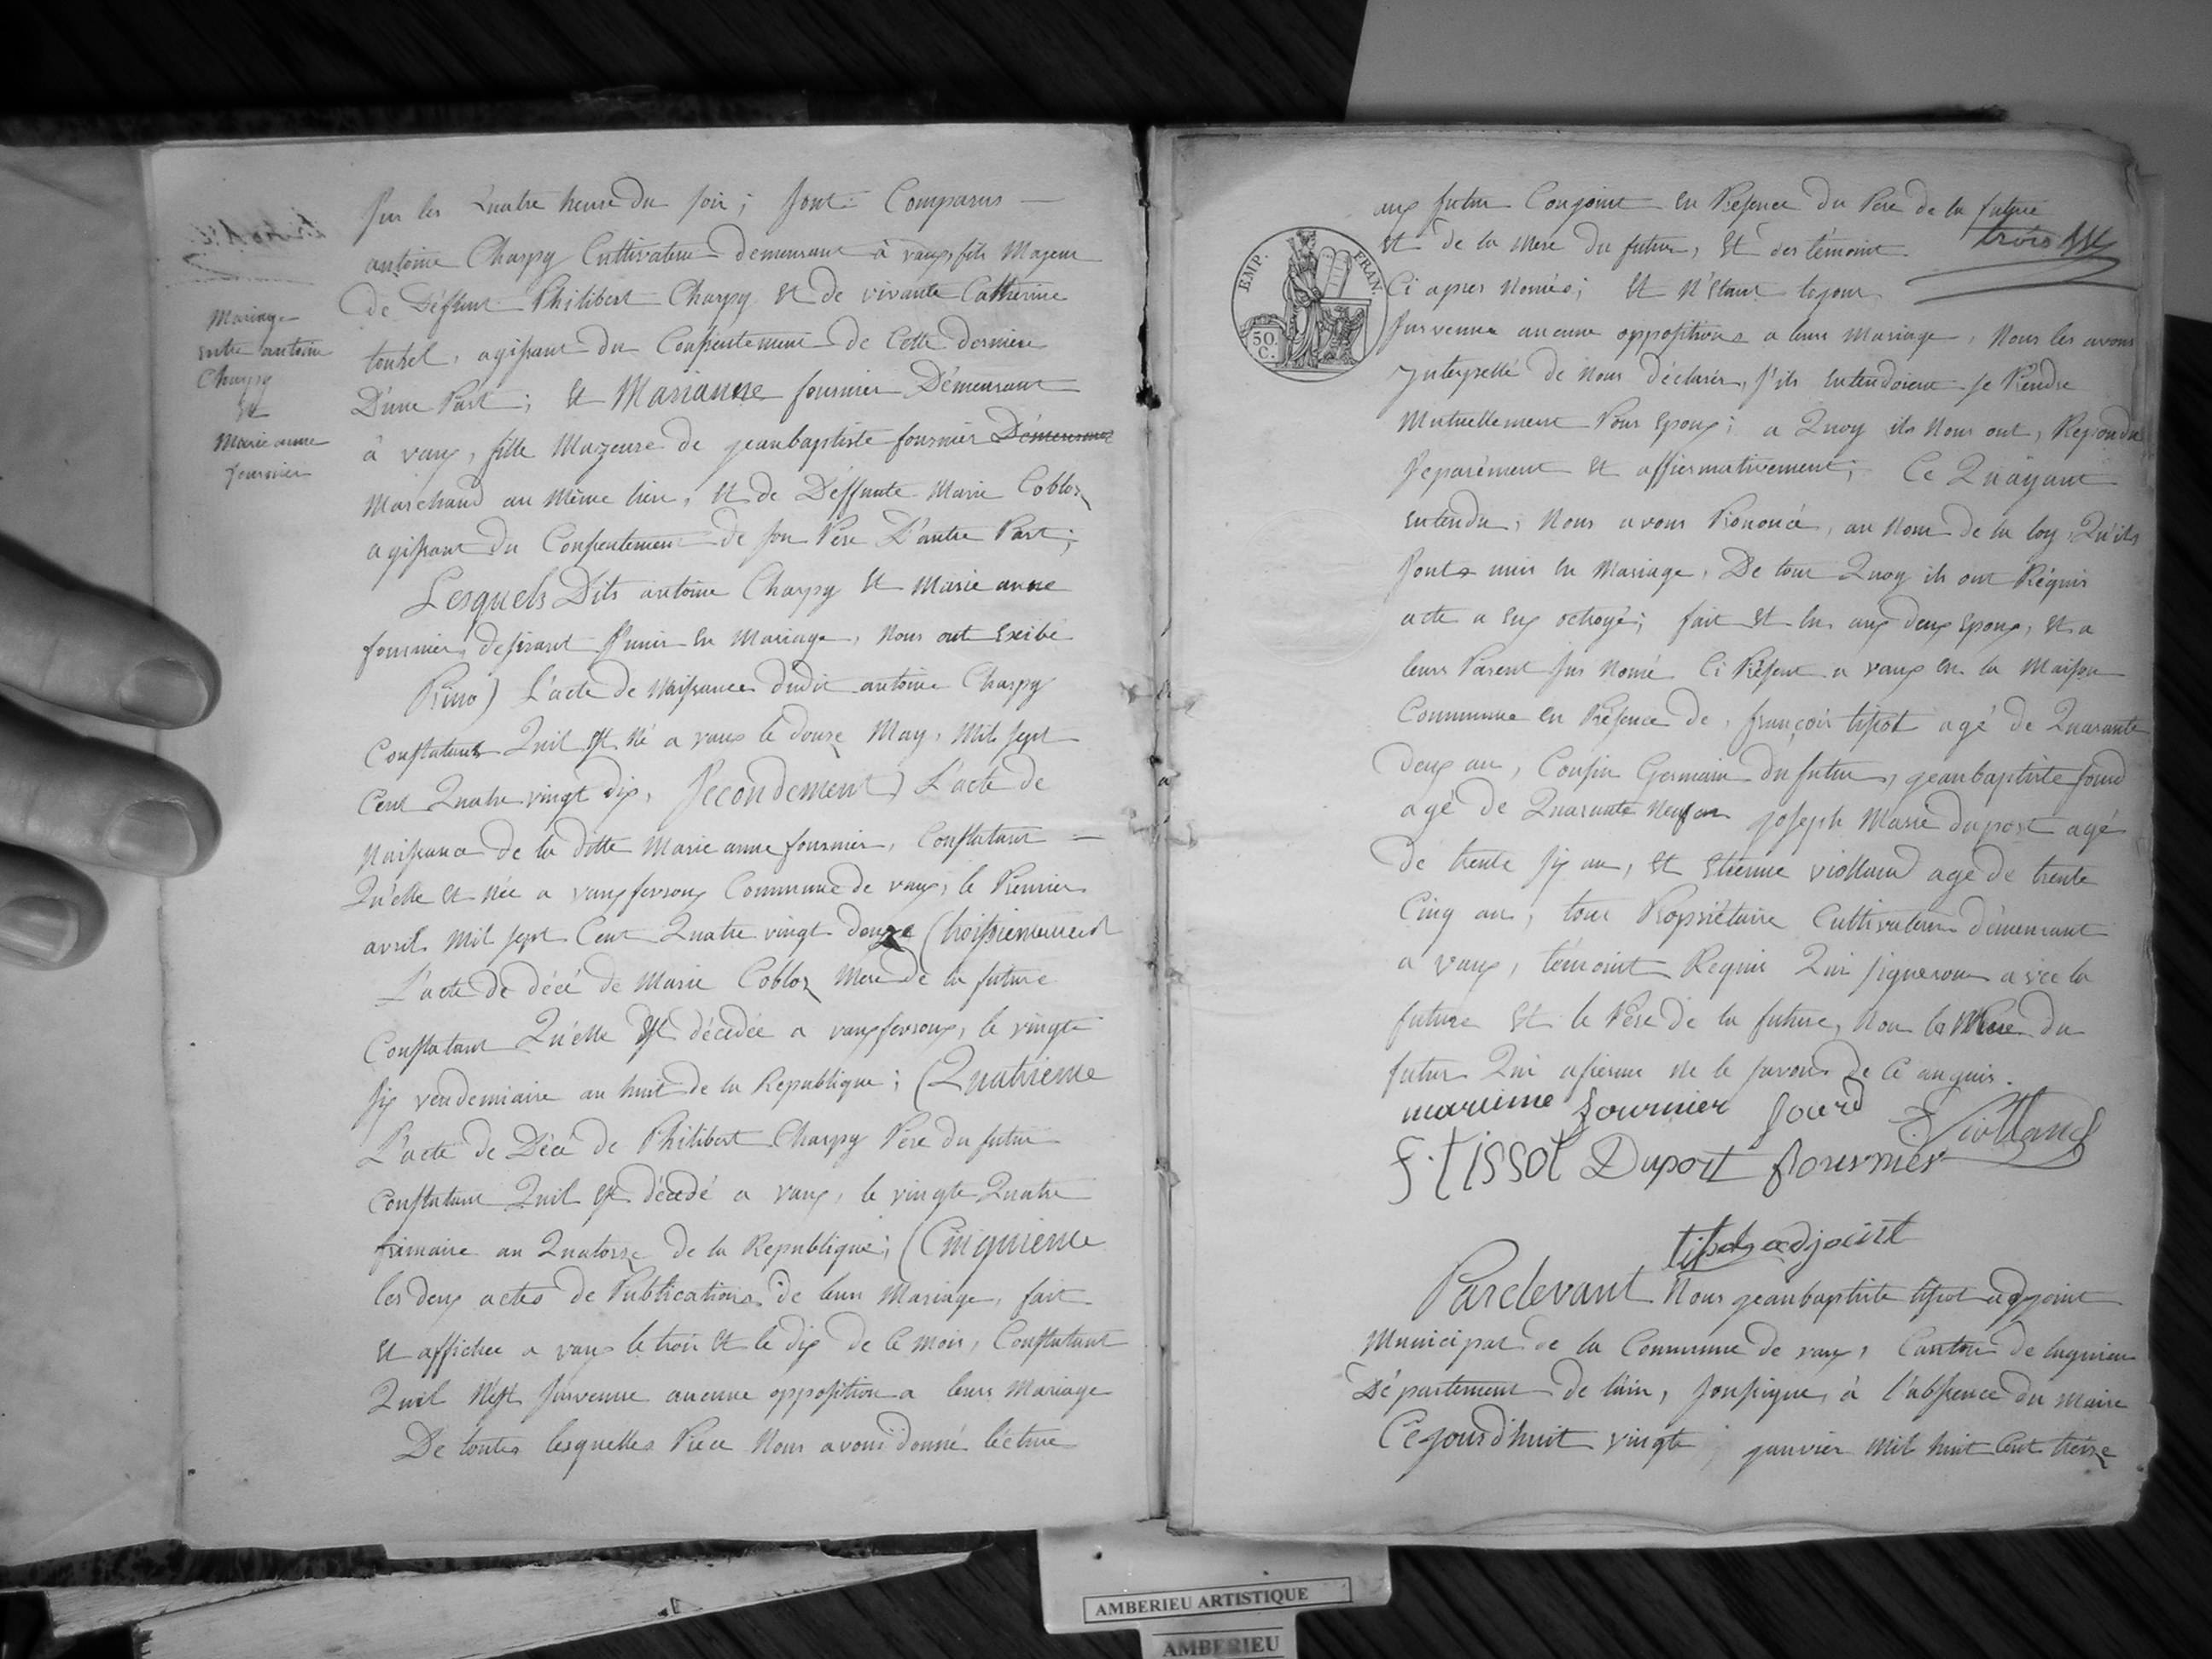 Mariage
Entre antoine
Charpy
Et
Marie anne
fournier
sur les Quatre heure du soir ; sont Comparus —
antoine Charpy Cultivateur demeurant à vaux, fils Majeur
de Déffunt Philibert Charpy Et de vivante Catherine
agissant du Consentement de Cette derniere
D'une Part ; Et Marianne fournier Démeurant
à vaux, fille Mageure de jeanbaptiste fournier Démeurant
Marchand au Même lieu, Et de Déffunte Marie Cobloz
agissant du Consentement de son Pere D'autre Part ;
Lesquels Dits antoine Charpy Et Marie anne
fournier, desirant S'unir En Mariage, Nous ont Exibé
Primo) L'acte de Naissance dudit antoine Charpy
Constatant Quil Est Né a vaux le douze May, Mil sept
Cent Quatre vingt dix, Secondement) L'acte de
Naissance de la ditte Marie anne fournier, Constatant =
Qu'elle Et Née a vauxfevroux Commune de vaux, le Premier
avril Mil sept Cent Quatre vingt douze (troisiemement
L'acte de décé de Marie Cobloz Mere de la future
Constatant Qu'elle Est décédée a vauxfevroux, le vingt
six vendemiaire an huit de la Republique ; (Quatrieme
L'acte de Décé de Philibert Charpy Pere du futur
Constatant Quil Est décédé a vaux, le vingte Quatre
frimaire an Quatorze de la Republique ; (Cinquieme
les deux actes de Publications de leur Mariage, fait
Et affichee a vaux le trois Et le dix de Ce mois, Constatant
Quil N'est survenue aucune opposition a leurs Mariage
De toutes lesquelles Piece Nous avons donné lecture
EMP. FRAN.
50.
C.
aux futur Conjoint En Présence du Pere de la future
trois
Et de la Mere du futur, Et des témoint
Ci apres Només ; Et N'étant
survenue aucune oppositions a leurs Mariage, Nous les avons
ynterpellé de Nous déclarer, s'ils Entendoient se Prendre
Mutuellement Pour Epoux ; a Quoy ils Nous ont, Repondu
separément Et affirmativement, Ce Quayant
Entendu ; Nous avons Prononcé, au Nom de la loy, Qu'ils
sont unis En Mariage, De tout Quoy ils ont Réquis
acte a Eux octroyé ; fait Et lu aux deux Epoux, Et a
leurs Parent sus Nomé Ci Présent a vaux En la Maison
Commune En Présence de, françois tissot agé de Quarante
Deux an, Cousin Germain du futur, jeanbaptiste fourd
agé de Quarante Neuf an joseph Marie duport agé
de trente six an, Et Etienne viollaud agé de trente
Cinq an, tous Propriétaire Cultivateur démeurant
a vaux, témoint Requis Qui signeron avec la
future Et le Pere de la future, Non la Mere du
futur Qui afierme Ne le savoir de Ce anquis.
marienne fournier Jourd E. Viollaud
F. tissot Duport fournier
tissot adjoint
Pardevant Nous jeanbaptiste tissot adjoint
Municipal de la Commune de vaux, Canton de lagnieu
Département de l'ain, soussigné, à l'absence du Maire
Cejourd'huit vingte janvier Mil huit Cent treize
AMBERIEU ARTISTIQUE
AMBERIEU